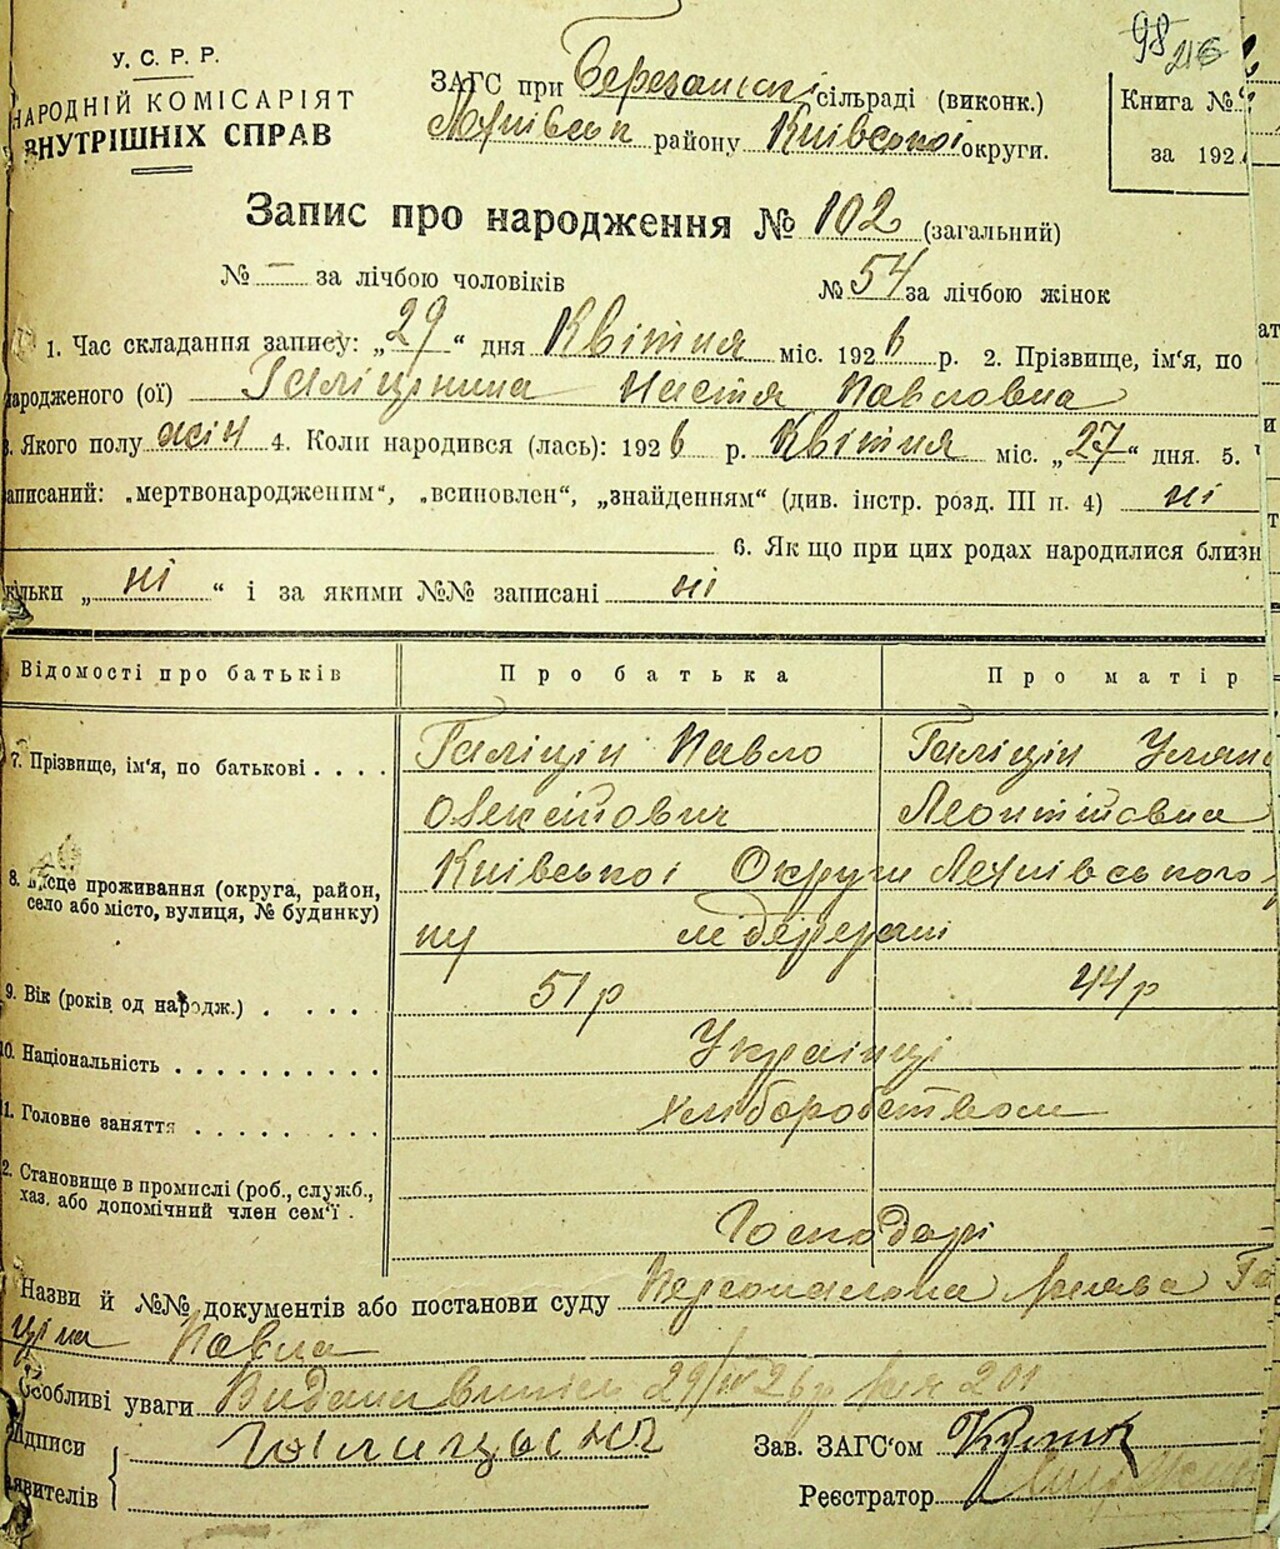 98 216
У. С. Р. Р.
НАРОДНІЙ КОМІСАРІЯТ
ВНУТРІШНІХ СПРАВ
ЗАГС при Березанські сільраді (виконк.)
району Київської округи.
Книга №
за 192
Запис про народження № 102 (загальний)
№ — за лічбою чоловіків № 54 за лічбою жінок
1. Час складання запису: „29“ дня Квітня міс. 1926 р. 2. Прізвище, ім'я, по
народженого (ої) Галіцина Настя Павловна
3. Якого полу жін 4. Коли народився (лась): 1926 р. Квітня міс. „27“ дня. 5.
записаний: „мертвонародженим“, „всиновлен“, „знайденням“ (див. інстр. розд. III п. 4) ні
6. Як що при цих родах народилися близн
кільки „ні“ і за якими №№ записані ні
Відомості про батьків Про батька Про матір
7. Прізвище, ім'я, по батькові . . . . Галіцін Павло Галіцін Уляна
Олексійович Леонтійовна
8. Місце проживання (округа, район, село або місто, вулиця, № будинку) Київської Округи
9. Вік (років од народж.) . . . . 51 р 44 р
10. Національність . . . . . . . . . . Українці
11. Головне заняття . . . . . . . . Хліборобством
12. Становище в промислі (роб., служб.,
хаз. або допомічний член сем'ї .
Господарі
Назви й №№ документів або постанови суду Персональна
ціна Павла
Особливі уваги Видана випись 29/IV 26 р 201
Підписи
заявителів
Зав. ЗАГС'ом
Реєстратор